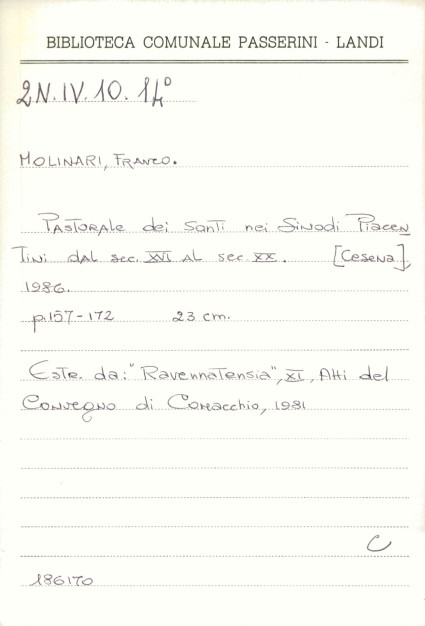 BIBLIOTECA COMUNALE PASSERINI - LANDI
2N.IV.10.14°
MOLINARI, FRANCO.
Pastorale dei Santi nei Sinodi Piacen
tini dal sec. XVI al sec XX. [Cesena],
1986.
p.157-172 23 cm.
Estr. da: "Ravennatensia", XI, Atti del
Convegno di Comacchio, 1981
C
186170